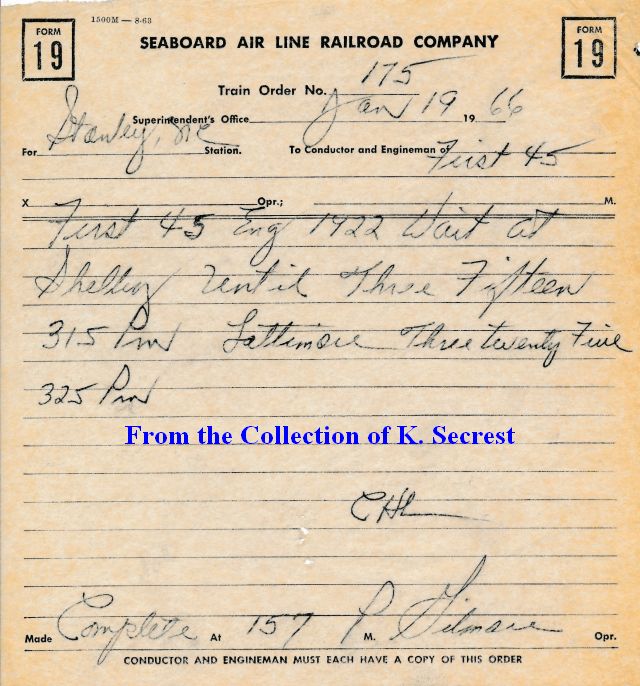 1500M — 8-63
FORM 19
SEABOARD AIR LINE RAILROAD COMPANY
FORM 19
Train Order No. 175
Superintendent's Office Jan 19 1966
For Stanley, NC Station. To Conductor and Engineman of First 45
X Opr.; M.
First 45 Eng 1922 Wait at
Shelby until Three Fifteen
315 PM Lattimore Three twenty Five
325 PM
From the Collection of K. Secrest
Made Complete At 157 P M. Gilmore Opr.
CONDUCTOR AND ENGINEMAN MUST EACH HAVE A COPY OF THIS ORDER